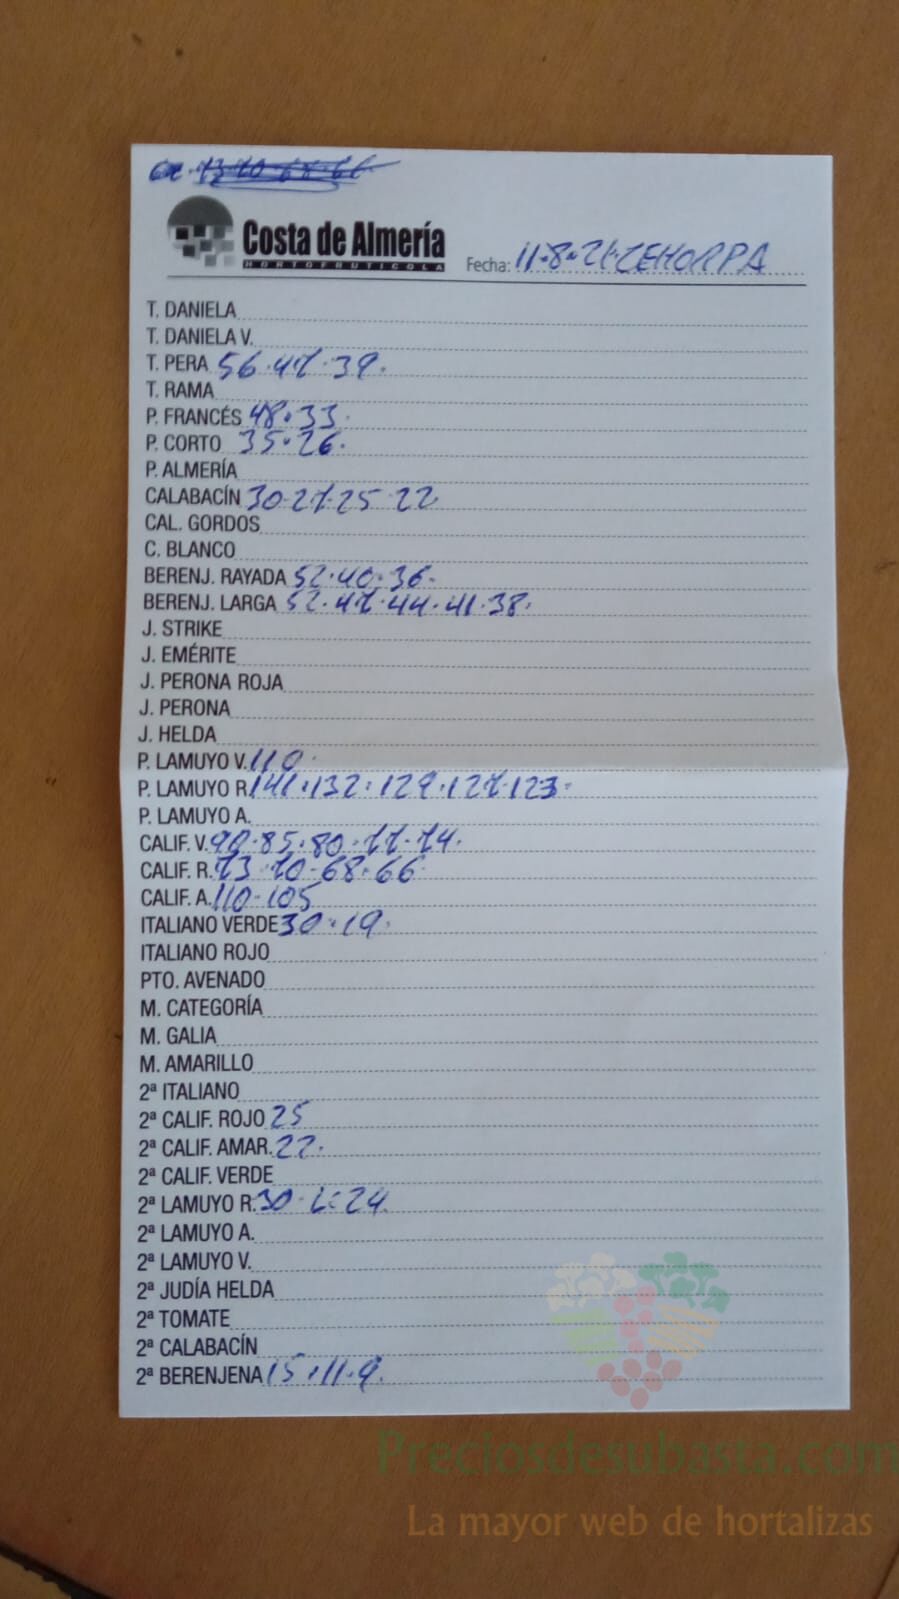 Costa de Almería
HORTOFRUTICOLA
Fecha: 11·8·21·CEHORPA
T. DANIELA
T. DANIELA V.
T. PERA 56·47·39·
T. RAMA
P. FRANCÉS 48·33·
P. CORTO 35·26·
P. ALMERÍA
CALABACÍN 30·27·25·22
CAL. GORDOS
C. BLANCO
BERENJ. RAYADA 52·40·36·
BERENJ. LARGA 52·47·44·41·38·
J. STRIKE
J. EMÉRITE
J. PERONA ROJA
J. PERONA
J. HELDA
P. LAMUYO V. 110·
P. LAMUYO R. 141·132·129·127·123·
P. LAMUYO A.
CALIF. V. 90·85·80·77·74·
CALIF. R. 73·70·68·66·
CALIF. A. 110·105
ITALIANO VERDE 30·19·
ITALIANO ROJO
PTO. AVENADO
M. CATEGORÍA
M. GALIA
M. AMARILLO
2ª ITALIANO
2ª CALIF. ROJO 25
2ª CALIF. AMAR. 22·
2ª CALIF. VERDE
2ª LAMUYO R. 30· 24·
2ª LAMUYO A.
2ª LAMUYO V.
2ª JUDÍA HELDA
2ª TOMATE
2ª CALABACÍN
2ª BERENJENA 15·11·9·
Preciosdesubasta.com
La mayor web de hortalizas